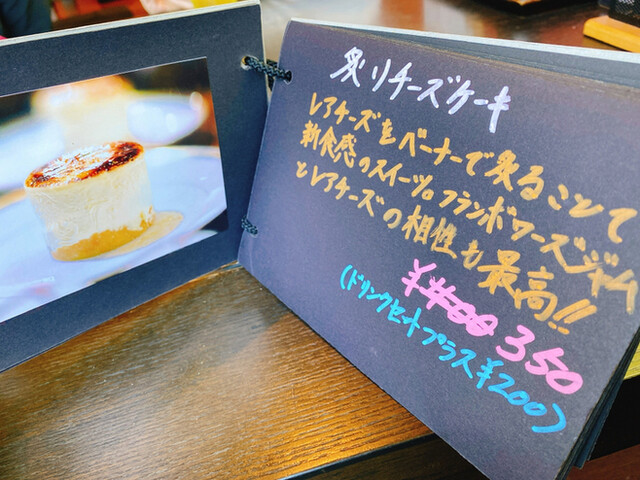 炙りチーズケーキ
レアチーズをバーナーで炙ることで
新食感のスイーツ。フランボワーズジャム
とレアチーズの相性も最高!!
¥350
(ドリンクセットプラス¥200)